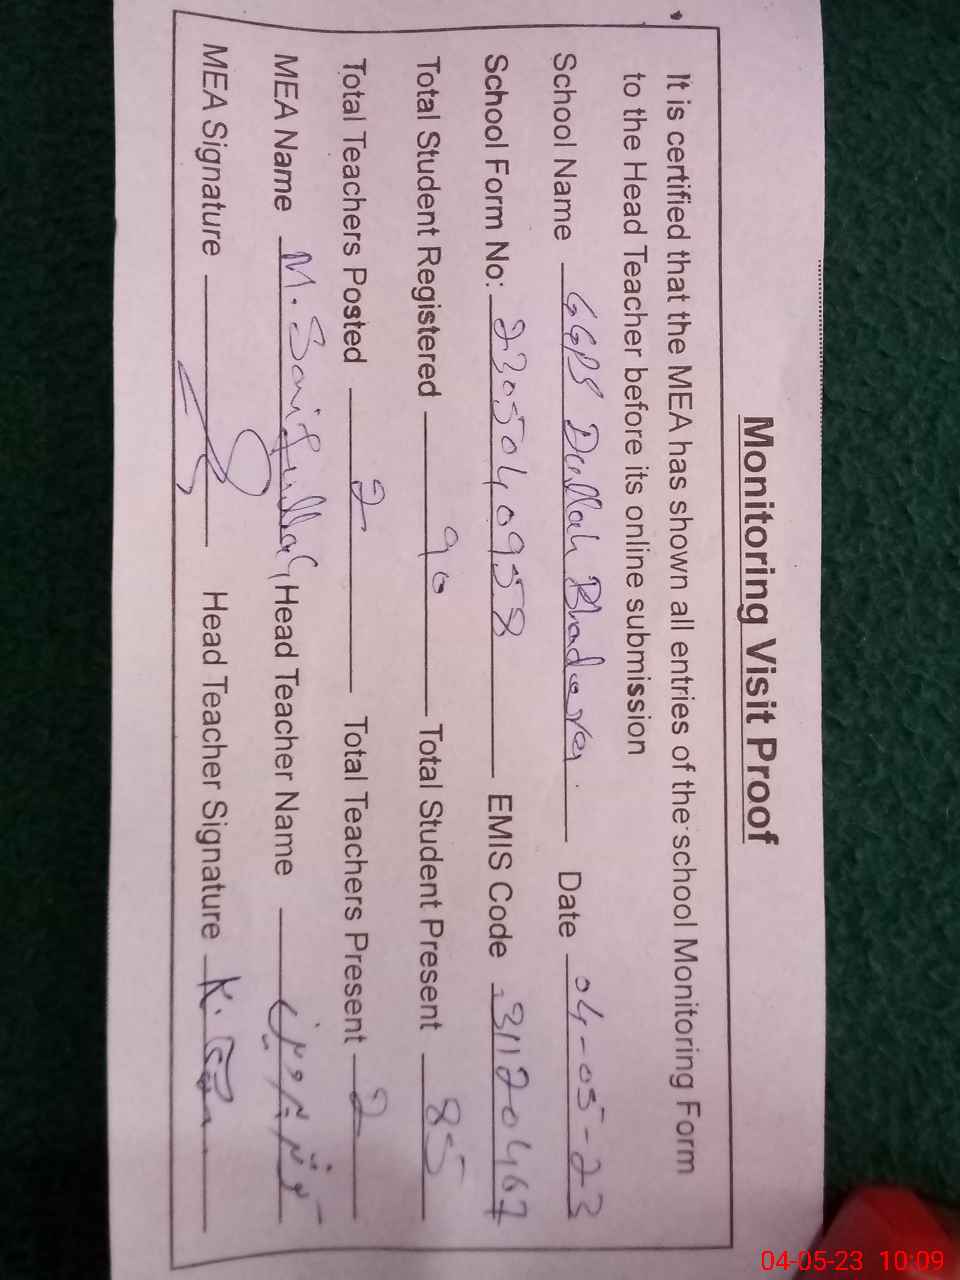 Monitoring Visit Proof
It is certified that the MEA has shown all entries of the school Monitoring Form
to the Head Teacher before its online submission
School Name GGPS Dullah Bhadera Date 04-05-23
School Form No: 230504 0958 EMIS Code 31120467
Total Student Registered 90 Total Student Present 85
Total Teachers Posted 2 Total Teachers Present 2
MEA Name M. Sanifullah Head Teacher Name
MEA Signature Head Teacher Signature K.
04-05-23 10:09